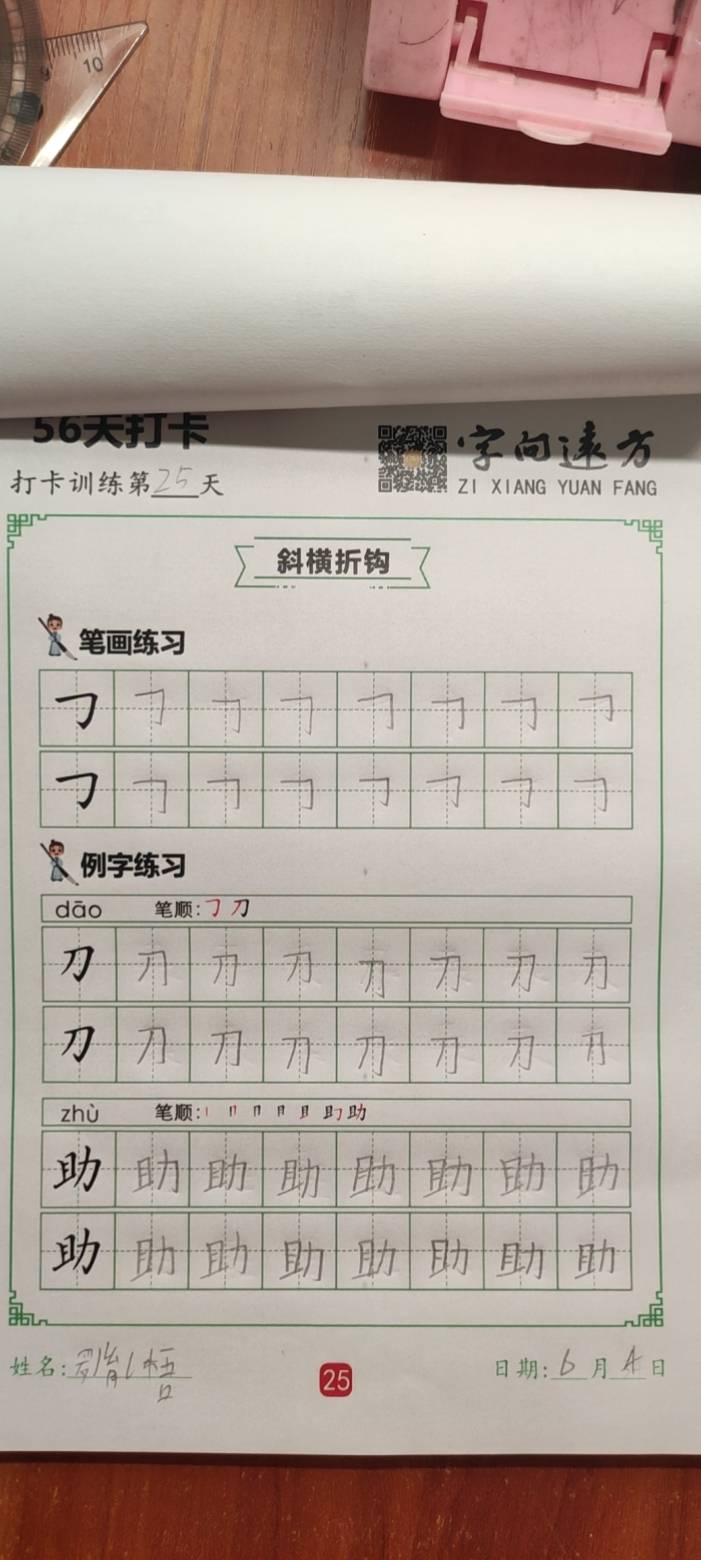 10
56天打卡
打卡训练第25天
字向远方
ZI XIANG YUAN FANG
斜横折钩
笔画练习
例字练习
dāo 笔顺:㇆刀
刀 刀 刀 刀 刀 刀 刀 刀
刀 刀 刀 刀 刀 刀 刀 刀
zhù 笔顺: 助
助 助 助 助 助 助 助 助
助 助 助 助 助 助 助 助
姓名:
25
日期:6月4日